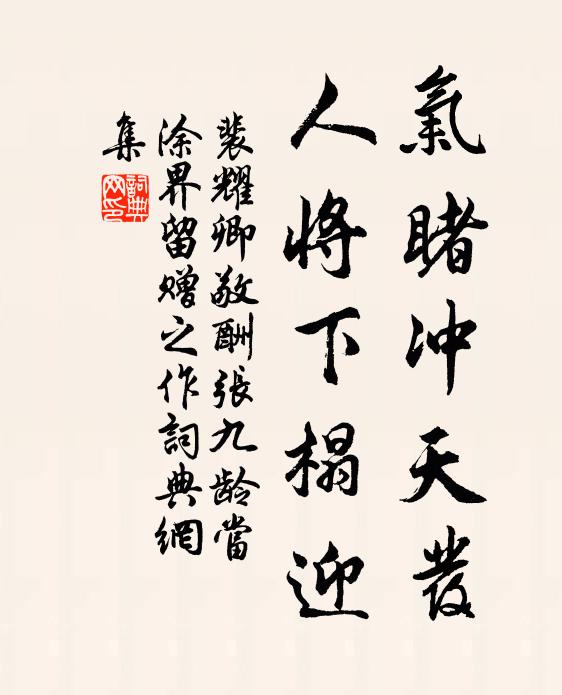 氣睹冲天發
人將下榻迎
裴耀卿敬酬張九龄當
涂界留贈之作詞典網
集
詞典
网印